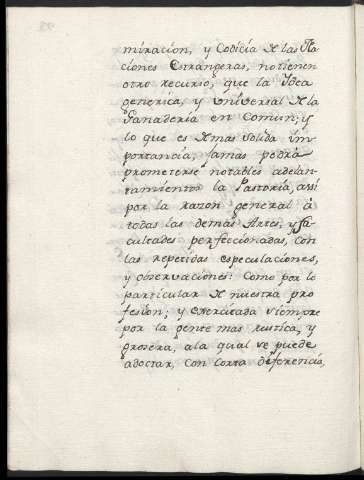 miracion, y Codicia de las Na
ciones Estrangeras, no tienen
otro recurso, que la Ydea
generica, y universal de la
Ganadería en Comun; y
lo que es de mas solida im
portancia, jamas podrá
prometerse notables adelan
tamientos la Pastoría, assi
por la razon general á
todas las demás Artes, y fa
cultades perfeccionadas, con
las repetidas especulaciones,
y observaciones: Como por lo
particular de nuestra pro
fesion; y Exercitada siempre
por la gente mas rustica, y
grosera, a la qual se puede
adoctar, con corta diferencia,